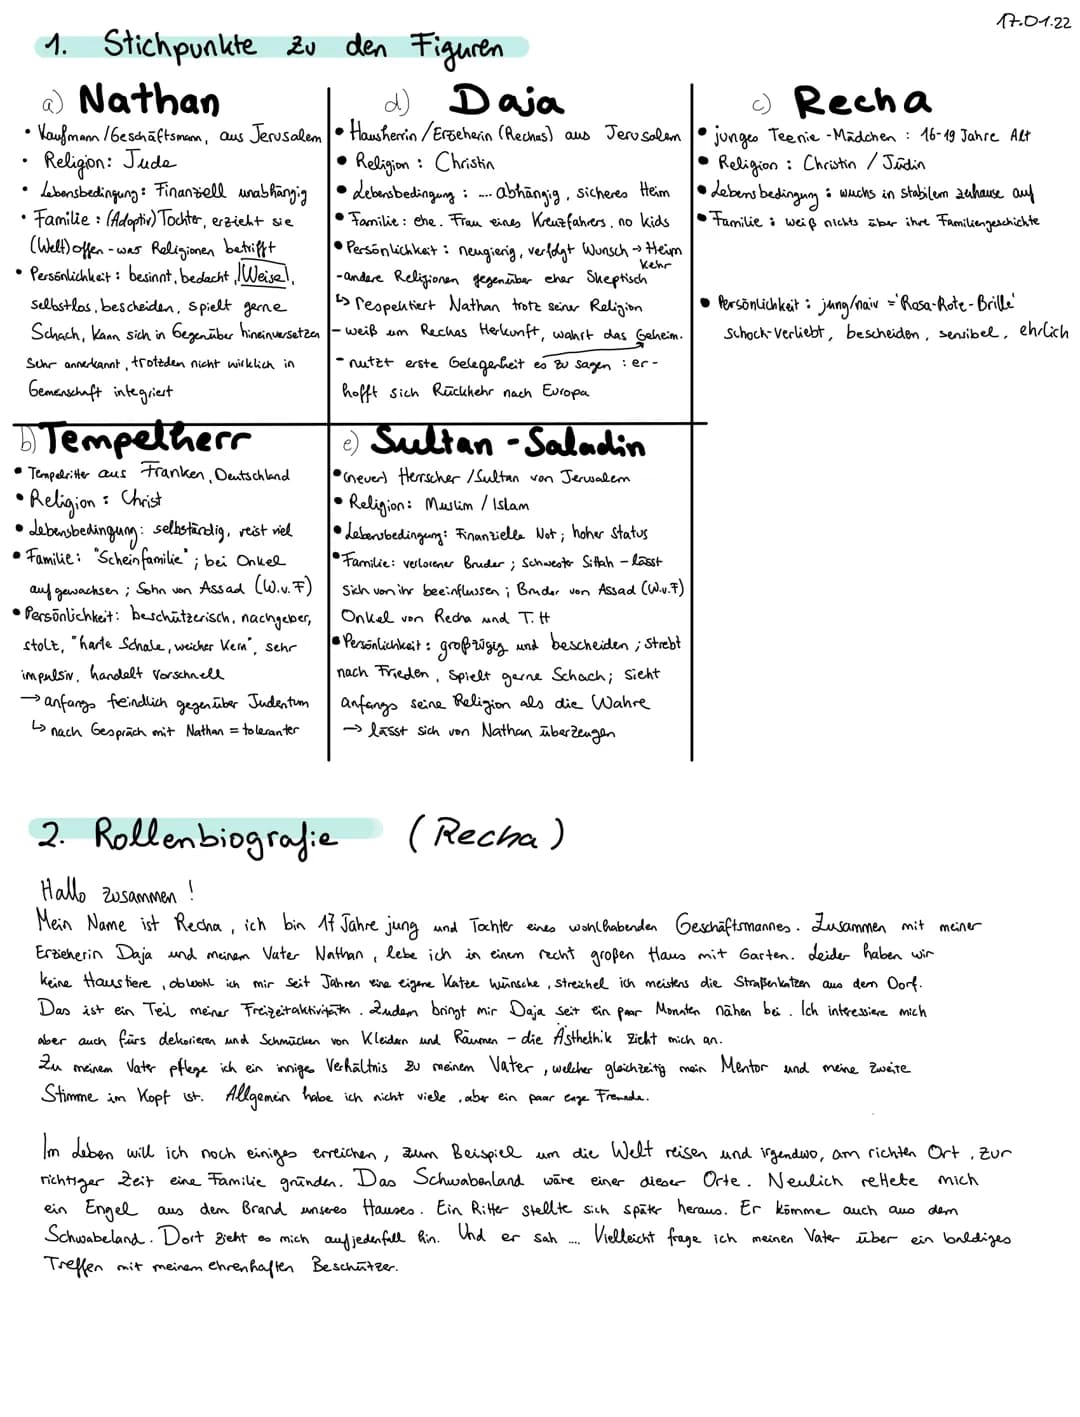 17.01.22
1. Stichpunkte zu den Figuren
a) Nathan
• Kaufmann/Geschäftsmann, aus Jerusalem
• Religion: Jude
• Lebensbedingung: Finanziell unabhängig
• Familie: (Adoptiv) Tochter, erzieht sie
(Welt)offen - was Religionen betrifft
• Persönlichkeit: besinnt, bedacht, "Weise",
selbstlos, bescheiden, spielt gerne
Schach, kann sich in Gegenüber hineinversetzen
Sehr annerkannt, trotzden nicht wirklich in
Gemeinschaft integriert
d) Daja
• Hausherrin/Erzieherin (Rechas) aus Jerusalem
• Religion: Christin
• Lebensbedingung: .... abhängig, sicheres Heim
• Familie: ehe. Frau eines Kreuzfahrers, no kids
• Persönlichkeit: neugierig, verfolgt Wunsch → Heim
kehr
-andere Religionen gegenüber eher Skeptisch
↳ respektiert Nathan trotz seiner Religion
- weiß um Rechas Herkunft, wahrt das Geheim.
- nutzt erste Gelegenheit es zu sagen : er-
hofft sich Rückkehr nach Europa
c) Recha
• junges Teenie-Mädchen : 16-19 Jahre Alt
• Religion : Christin / Jüdin
• Lebensbedingung : wuchs in stabilem zuhause auf
• Familie : weiß nichts über ihre Familiengeschichte
• Persönlichkeit : jung/naiv = 'Rosa-Rote-Brille'
Schock-Verliebt, bescheiden, sensibel, ehrlich
b) Tempelherr
• Tempelritter aus Franken, Deutschland
• Religion : Christ
• Lebensbedingung: selbständig, reist viel
• Familie: "Scheinfamilie"; bei Onkel
aufgewachsen ; Sohn von Assad (W.v.F)
• Persönlichkeit: beschützerisch, nachgeber,
stolt, "harte Schale, weicher Kern", sehr
impulsiv, handelt Vorschnell
→ anfangs feindlich gegenüber Judentum
↳ nach Gespräch mit Nathan = toleranter
e) Sultan-Saladin
• (neuer) Herrscher /Sultan von Jerusalem
• Religion: Muslim / Islam
• Lebensbedingung: Finanzielle Not; hoher Status
• Familie: verlorener Bruder ; Schwester Sittah - lässt
Sich von ihr beeinflussen ; Bruder von Assad (W.v.F)
Onkel von Recha und T.H
• Persönlichkeit : großzügig und bescheiden ; Strebt
nach Frieden, Spielt gerne Schach; Sieht
anfangs seine Religion als die Wahre
→ lässt sich von Nathan überzeugen
2. Rollenbiografie (Recha)
Hallo zusammen !
Mein Name ist Recha, ich bin 17 Jahre jung und Tochter eines wohlhabenden Geschäftsmannes. Zusammen mit meiner
Erzieherin Daja und meinem Vater Nathan, lebe ich in einem recht großen Haus mit Garten. Leider haben wir
keine Haustiere, obwohl ich mir seit Jahren eine eigene Katze wünsche, streichel ich meistens die Straßenkatzen aus dem Dorf.
Das ist ein Teil meiner Freizeitaktivitäten. Zudem bringt mir Daja seit ein paar Monaten nähen bei. Ich interessiere mich
aber auch fürs dekorieren und Schmücken von Kleidern und Räumen - die Ästhethik zieht mich an.
Zu meinem Vater pflege ich ein inniges Verhältnis zu meinem Vater, welcher gleichzeitig mein Mentor und meine Zweite
Stimme im Kopf ist. Allgemein habe ich nicht viele, aber ein paar enge Freunde.
Im Leben will ich noch einiges erreichen, zum Beispiel um die Welt reisen und irgendwo, am richten Ort, zur
richtiger Zeit eine Familie gründen. Das Schwabenland wäre einer dieser Orte. Neulich rettete mich
ein Engel aus dem Brand unseres Hauses. Ein Ritter stellte sich später heraus. Er kömme auch aus dem
Schwabeland. Dort zieht es mich aufjedenfall hin. Und er sah .... Vielleicht frage ich meinen Vater über ein baldiges
Treffen mit meinem ehrenhaften Beschützer.